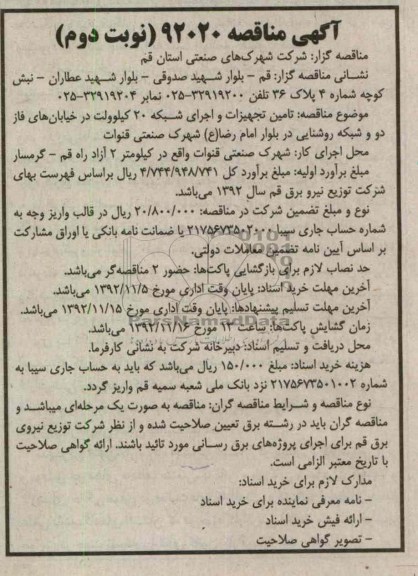 آگهی مناقصه ۹۲۰۲۰ (نوبت دوم)
مناقصه گزار: شرکت شهرک‌های صنعتی استان قم
نشانی مناقصه گزار: قم - بلوار شهید صدوقی - بلوار شهید عطاران - نبش
کوچه شماره ۴ پلاک ۳۶ تلفن ۳۲۹۱۹۲۰۰-۰۲۵ نمابر ۳۲۹۱۹۲۰۴-۰۲۵
موضوع مناقصه: تامین تجهیزات و اجرای شبکه ۲۰ کیلوولت در خیابان‌های فاز
دو و شبکه روشنایی در بلوار امام رضا(ع) شهرک صنعتی قنوات
محل اجرای کار: شهرک صنعتی قنوات واقع در کیلومتر ۲ آزاد راه قم - گرمسار
مبلغ برآورد اولیه: مبلغ برآورد کل ۴/۷۴۴/۹۴۸/۷۴۱ ریال براساس فهرست بهای
شرکت توزیع نیرو برق قم سال ۱۳۹۲ می‌باشد.
نوع و مبلغ تضمین شرکت در مناقصه: ۲۰/۸۰۰/۰۰۰ ریال در قالب واریز وجه به
شماره حساب جاری سیبا ۲۱۷۵۶۷۳۵۰۲۰۰۰ یا ضمانت نامه بانکی یا اوراق مشارکت
بر اساس آیین نامه تضمین معاملات دولتی.
حد نصاب لازم برای بازگشایی پاکت‌ها: حضور ۲ مناقصه‌گر می‌باشد.
آخرین مهلت خرید اسناد: پایان وقت اداری مورخ ۱۳۹۲/۱۱/۵ می‌باشد.
آخرین مهلت تسلیم پیشنهادها: پایان وقت اداری مورخ ۱۳۹۲/۱۱/۱۵ می‌باشد.
زمان گشایش پاکت‌ها: ساعت ۱۲ مورخ ۱۳۹۲/۱۱/۱۶ می‌باشد.
محل دریافت و تسلیم اسناد: دبیرخانه شرکت به نشانی کارفرما.
هزینه خرید اسناد: مبلغ ۱۵۰/۰۰۰ ریال می‌باشد که باید به حساب جاری سیبا به
شماره ۲۱۷۵۶۷۳۵۰۱۰۰۲ نزد بانک ملی شعبه سمیه قم واریز گردد.
نوع مناقصه و شرایط مناقصه گران: مناقصه به صورت یک مرحله‌ای میباشد و
مناقصه گران باید در رشته برق تعیین صلاحیت شده و از نظر شرکت توزیع نیروی
برق قم برای اجرای پروژه‌های برق رسانی مورد تائید باشند. ارائه گواهی صلاحیت
با تاریخ معتبر الزامی است.
مدارک لازم برای خرید اسناد:
- نامه معرفی نماینده برای خرید اسناد
- ارائه فیش خرید اسناد
- تصویر گواهی صلاحیت